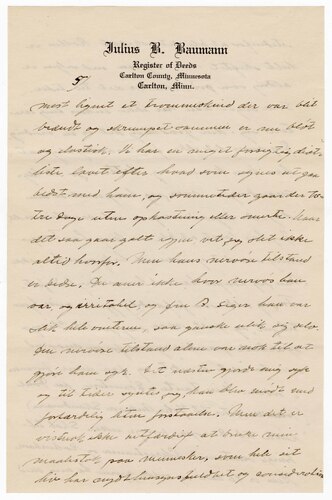 Julius B. Baumann
Register of Deeds
Carlton County, Minnesota
Carlton, Minn.
5
mest lignet et trommeskind der var blit
brændt og skrumpet sammen er nu blöt
og elastisk. Vi har en meget forsigtig diæt-
liste lavet efter hvad som synes at gaa
bedst med ham, og sommetider gaar der to-
tre dage uten ophostning eller smerte. Naar
det saa gaar galt igjen vet jeg slet ikke
altid hvorfor. Men hans nervöse tilstand
er bedre. De aner ikke hvor nervös han
var, og irritabel og fru B. siger han var
slik hele vinteren, saa ganske ulik sig selv.
Den nervöse tilstand alene var nok til at
gjöre ham syk. Det næsten gjorde mig syk
og til tider syntes jeg han blev mödt med
forfærdelig liten forstaaelse. Men det er
vistnok ikke retfærdig at bruke min
maalestok paa mennesker, som hele sit
liv har nydt hensynsfuldhet og consideration